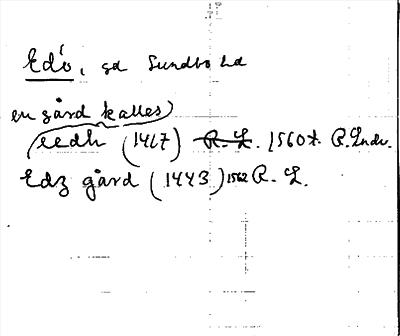 Edö, sd Sundbo hd
en gård kalles)
(eedh (1417) R. L. 1560t. R. Lndr.
Edz gård (1443) 1562 R. L.